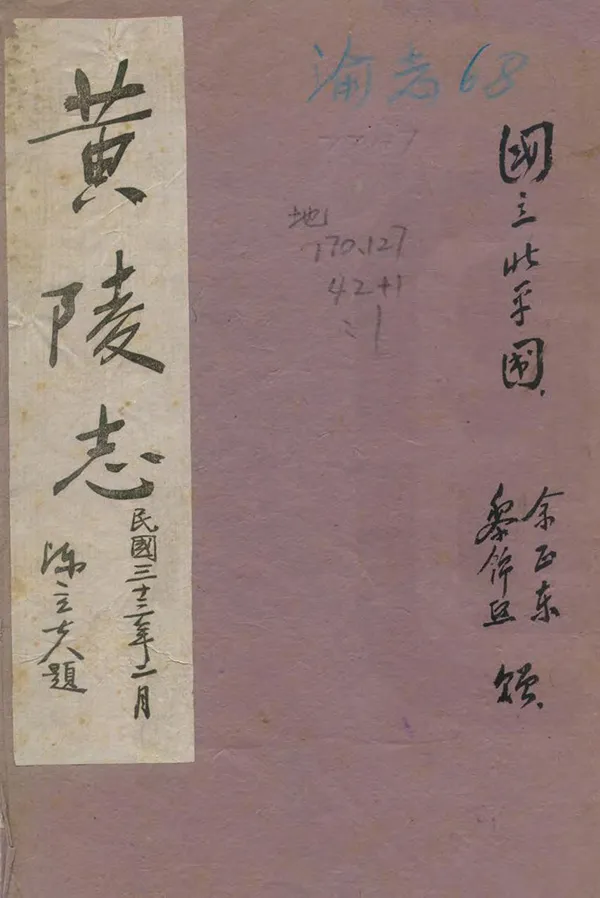 國立北平圖
余正东
黎錦熙
贈
渝志68
地
170.127
42+1
黄陵志
民國三十三年二月
陈立夫題